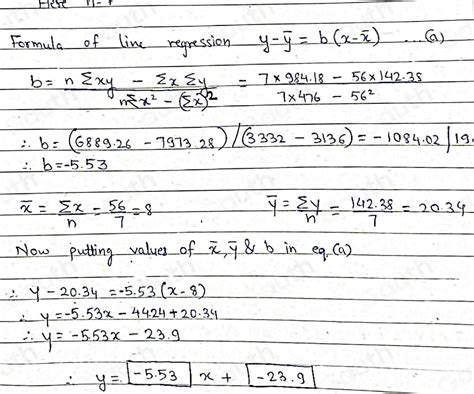 Here n=7
Formula of line regression y-ȳ = b(x-x̄) ...(a)
b = nΣxy - Σx Σy / nΣx² - (Σx)² = 7×984.18 - 56×142.38 / 7×476 - 56²
∴ b = (6889.26 - 7973.28)/(3332 - 3136) = -1084.02/19
∴ b = -5.53
x̄ = Σx/n = 56/7 = 8 ȳ = Σy/n = 142.38/7 = 20.34
Now putting values of x̄, ȳ & b in eq.(a)
∴ y - 20.34 = -5.53(x-8)
∴ y = -5.53x - 4424 + 20.34
∴ y = -5.53x - 23.9
∴ y = -5.53 x + -23.9